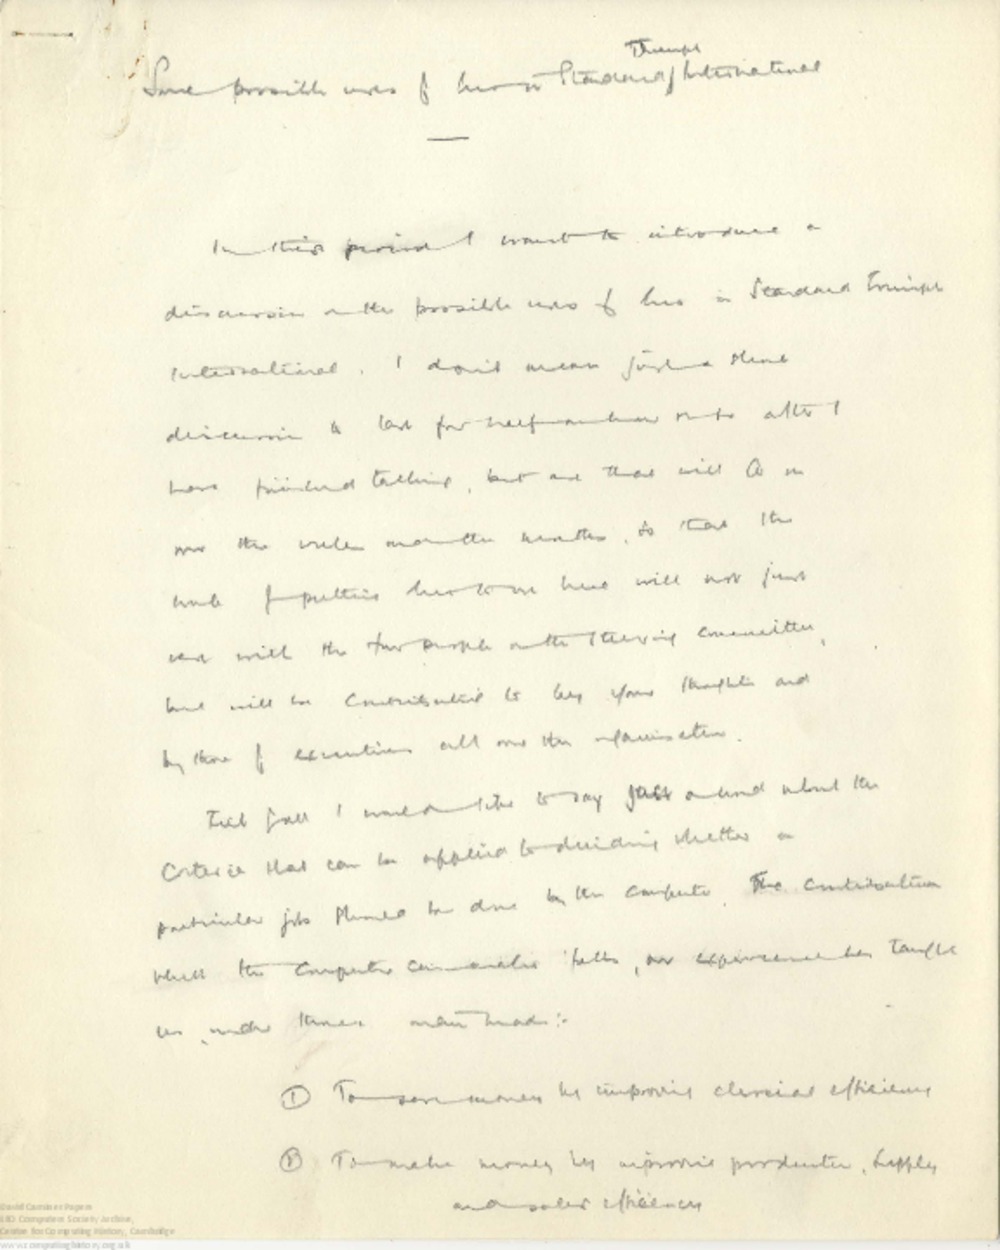 Some possible uses of Leo in Standard Triumph International
In this period I want to introduce a
discussion on the possible uses of Leo in Standard Triumph
International. I don't mean just a short
discussion to last for half an hour or so after I
have finished talking, but one that will go on
over the weeks and the months, so that the
work of putting Leo to use here will not just
rest with the few people on the steering committee,
but will be contributed to by your thoughts and
by those of executives all over the organisation.
First of all I would like to say just a word about the
criteria that can be applied to deciding whether a
particular job should be done by the computer. The contribution
which the computer can make falls, our experience has taught
us, under three main heads:-
① To save money by improving clerical efficiency
② To make money by improving production, supply
and sales efficiency
David Caminer Papers
LEO Computers Society Archive,
Centre for Computing History, Cambridge
www.computinghistory.org.uk